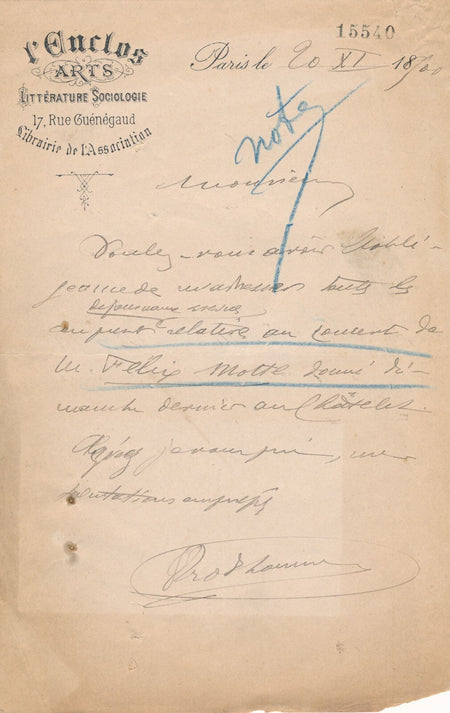 15540
l'Enclos
ARTS
LITTÉRATURE SOCIOLOGIE
17, Rue Guénégaud
Librairie de l'Association
Paris le 20 XI 18
note
Monsieur
Voulez-vous avoir l'obli-
geance de m'adresser toutes les
relative au concert de
M. Félix Mottl donné di-
manche dernier au Châtelet.
je vous prie, mes
salutations
Prod'homme